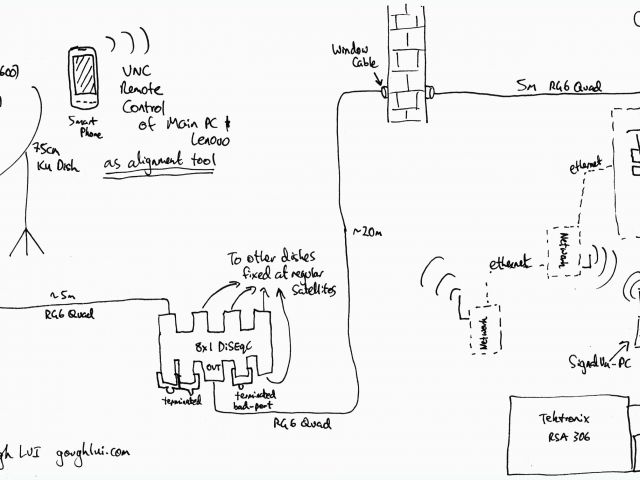 600)
VNC
Remote
Control
of Main PC &
Lenovo
as alignment tool
Smart
Phone
75cm
Ku Dish
Window
Cable
5m RG6 Quad
ethernet
Network
ethernet
Network
~20m
To other dishes
fixed at regular
satellites
~5m
RG6 Quad
8x1 DiSEqC
OUT
terminated
terminated
bad-port
RG6 Quad
Signal
-PC
Tektronix
RSA 306
gh LUI goughlui.com